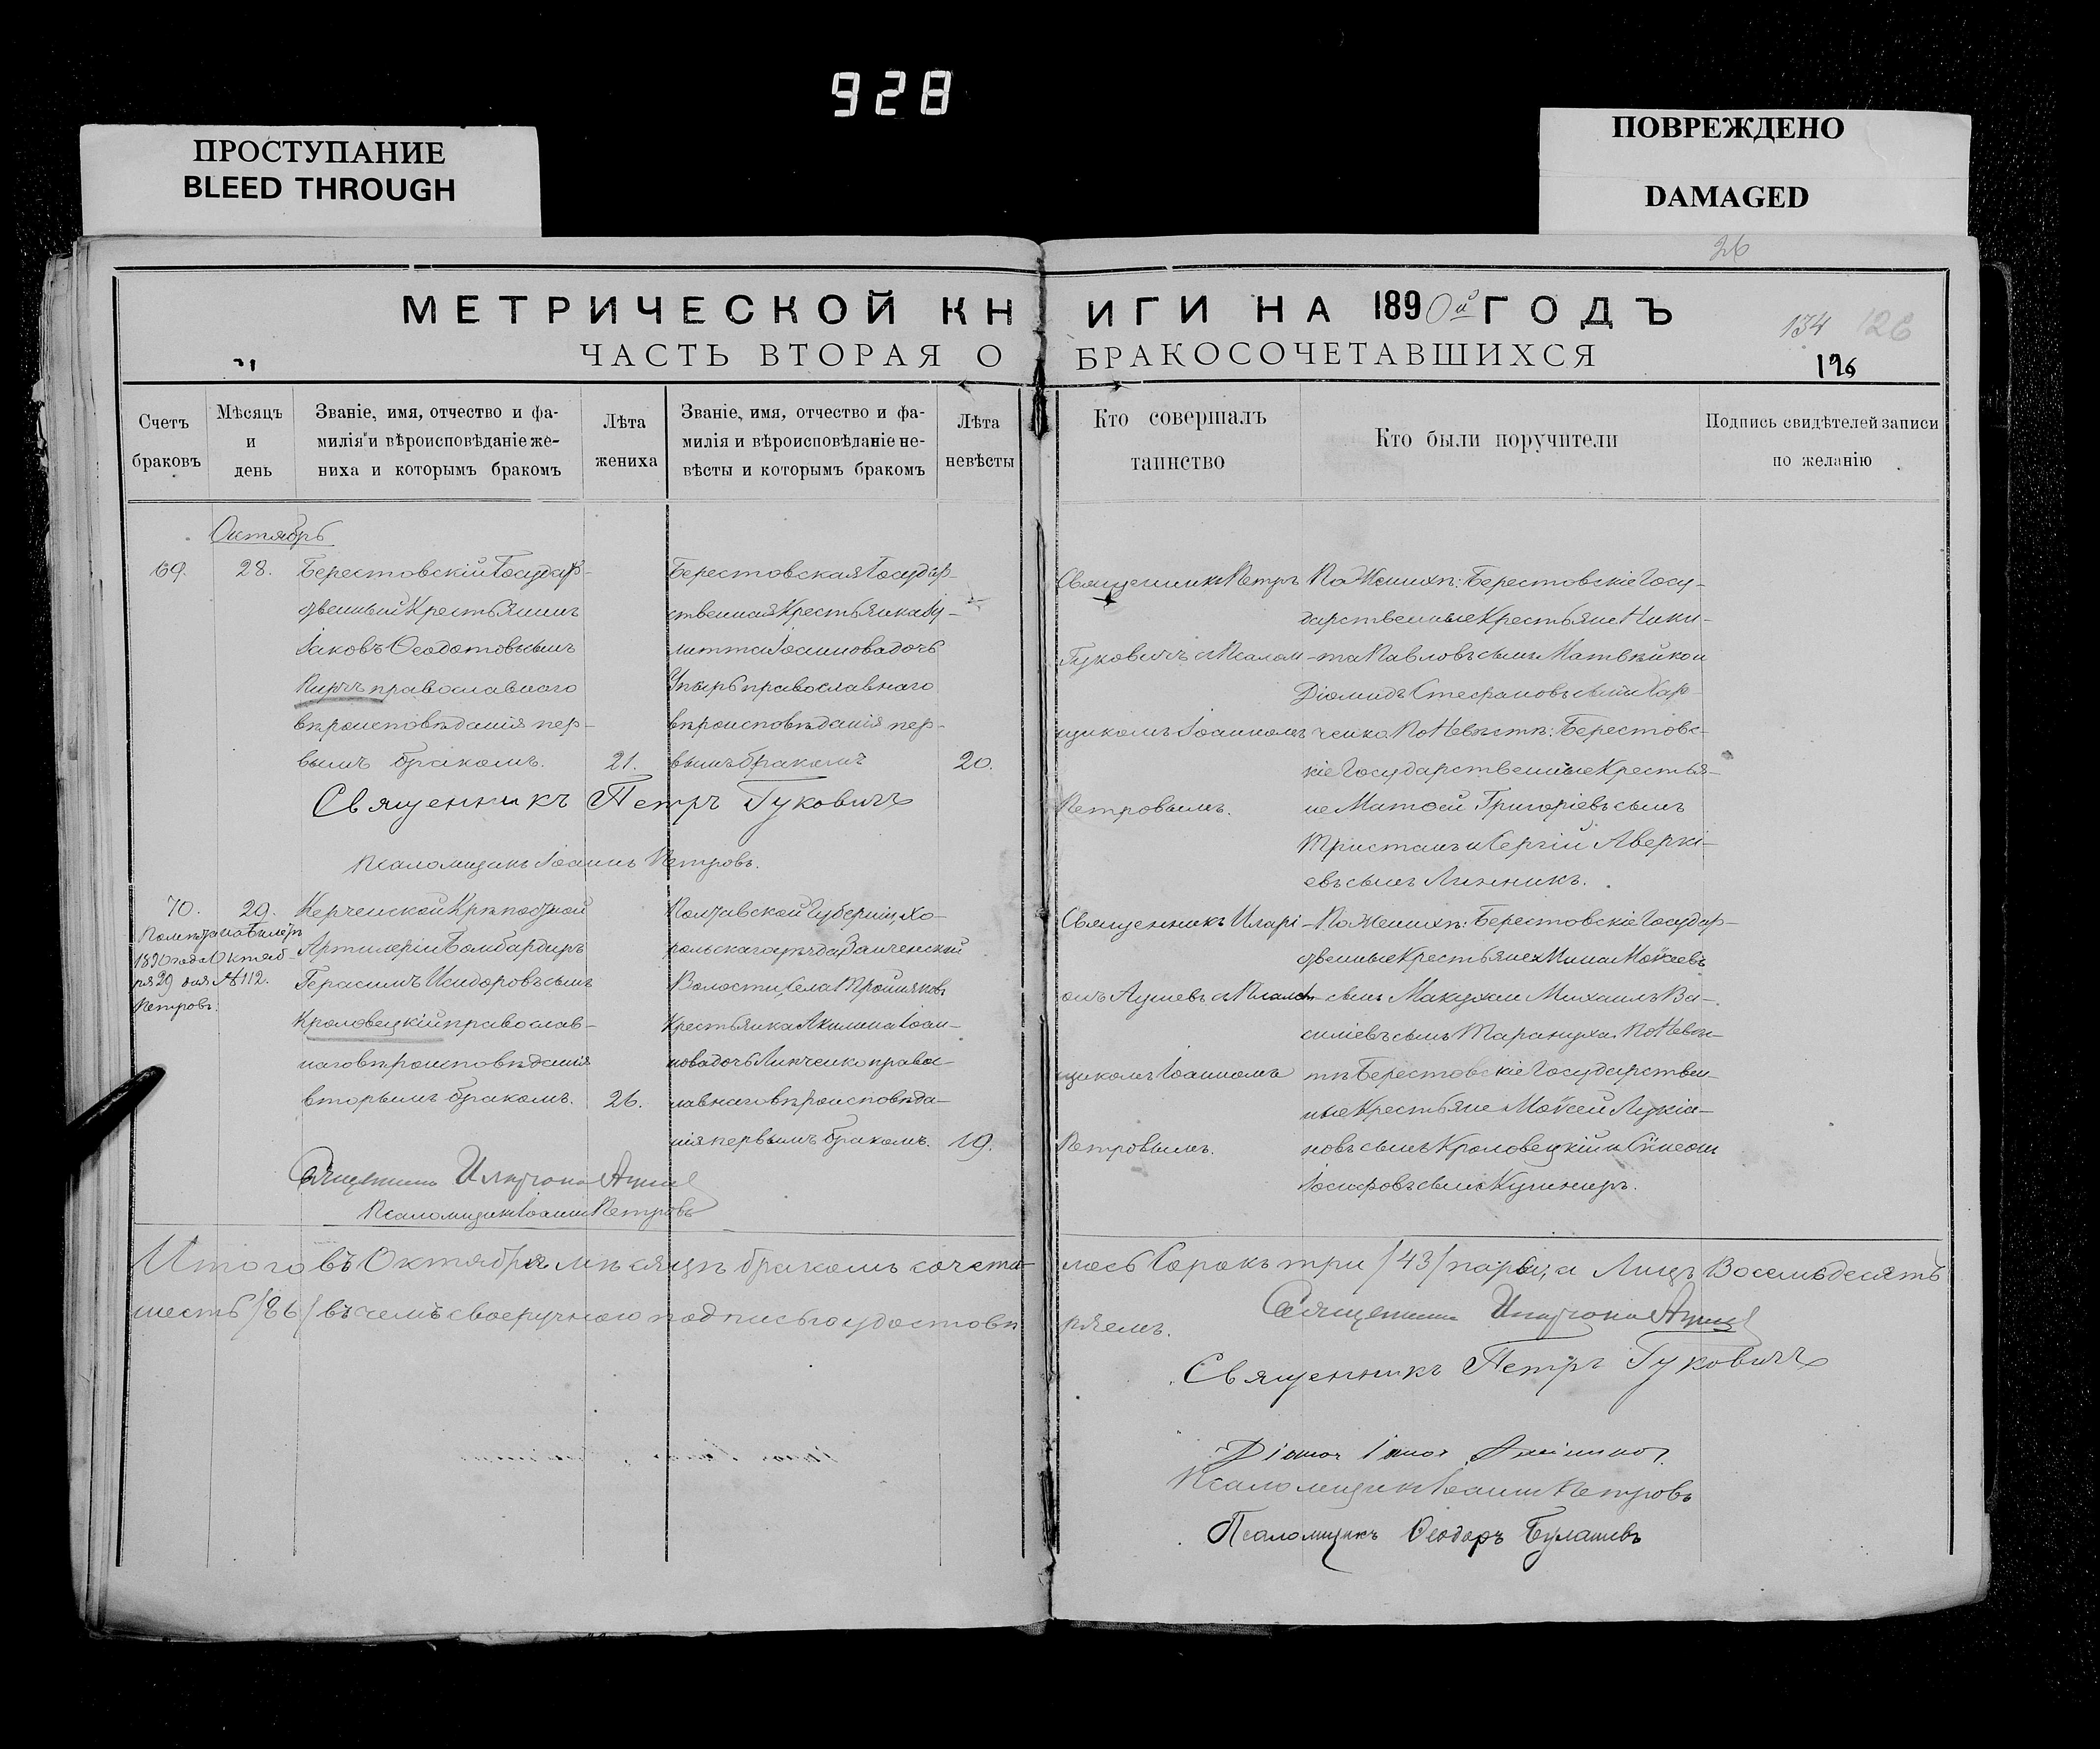 928
ПРОСТУПАНИЕ
BLEED THROUGH
ПОВРЕЖДЕНО
DAMAGED
26
МЕТРИЧЕСКОЙ КНИГИ НА 1890й ГОДЪ
134 126
ЧАСТЬ ВТОРАЯ О БРАКОСОЧЕТАВШИХСЯ
126
Счетъ
браковъ
Мѣсяцъ
и
день
Званіе, имя, отчество и фа-
милія и вѣроисповѣданіе же-
ниха и которымъ бракомъ
Лѣта
жениха
Званіе, имя, отчество и фа-
милія и вѣроисповѣданіе не-
вѣсты и которымъ бракомъ
Лѣта
невѣсты
Кто совершалъ
таинство
Кто были поручители
Подпись свидѣтелей записи
по желанію
Октябрь
69.
28.
Берестовскій Государ-
ственный Крестьянинъ
Іаковъ Ѳеодотовъ сынъ
православнаго
вѣроисповѣданія пер-
вымъ бракомъ.
21.
Берестовская Государ-
ственная Крестьянка Іу-
литта Іоаннова дочь
Упырь православнаго
вѣроисповѣданія пер-
вымъ бракомъ
20.
Священникъ Петръ
Гуковичъ съ Псалом-
щикомъ Іоанномъ
Петровымъ.
По Женихѣ: Берестовскіе Госу-
дарственные Крестьяне Ники-
та Павловъ сынъ Матвѣйко и
Діомидъ Стефановъ сынъ Хар-
ченко. По Невѣстѣ: Берестовс-
кіе Государственные Крестья-
не Матѳей Григоріевъ сынъ
Тристанъ и Сергій Аверкі-
евъ сынъ Линникъ.
Священникъ Петръ Гуковичъ
Псаломщикъ Іоаннъ Петровъ.
70.
29.
1890 года Октяб-
ря 29 дня № 112.
Петровъ.
Керченской Крѣпостной
Артилеріи Бомбардиръ
Герасимъ Исидоровъ сынъ
Кроловецкій православ-
наго вѣроисповѣданія
вторымъ бракомъ.
26.
Полтавской Губерніи, Хо-
рольскаго уѣзда,
Волости, Села
Крестьянка Акилина Іоан-
нова дочь Линченко правос-
лавнаго вѣроисповѣда-
нія первымъ бракомъ.
19.
Священникъ Иларі-
онъ Ацневъ съ Псалом-
щикомъ Іоанномъ
Петровымъ.
По Женихѣ: Берестовскіе Государ-
ственные Крестьяне Мина Моѵсеевъ
сынъ Макуха и Михаилъ Ва-
силіевъ сынъ Тарануха. По Невѣс-
тѣ Берестовскіе Государствен-
ные Крестьяне Моѵсей Лукіа-
новъ сынъ Кроловецкій и Сѵмеонъ
Іосифовъ сынъ Кушниръ.
Священникъ
Псаломщикъ Іоаннъ Петровъ
Итого въ Октябрѣ мѣсяцѣ бракомъ сочета-лось Сорокъ три /43/ пары, а Лицъ Восемьдесятъ
шесть /86/ въ чемъ своеручною подписью удостовѣ-ряемъ.
Священникъ
Священникъ Петръ Гуковичъ
Псаломщикъ Іоаннъ Петровъ
Псаломщикъ Ѳеодоръ Булашевъ